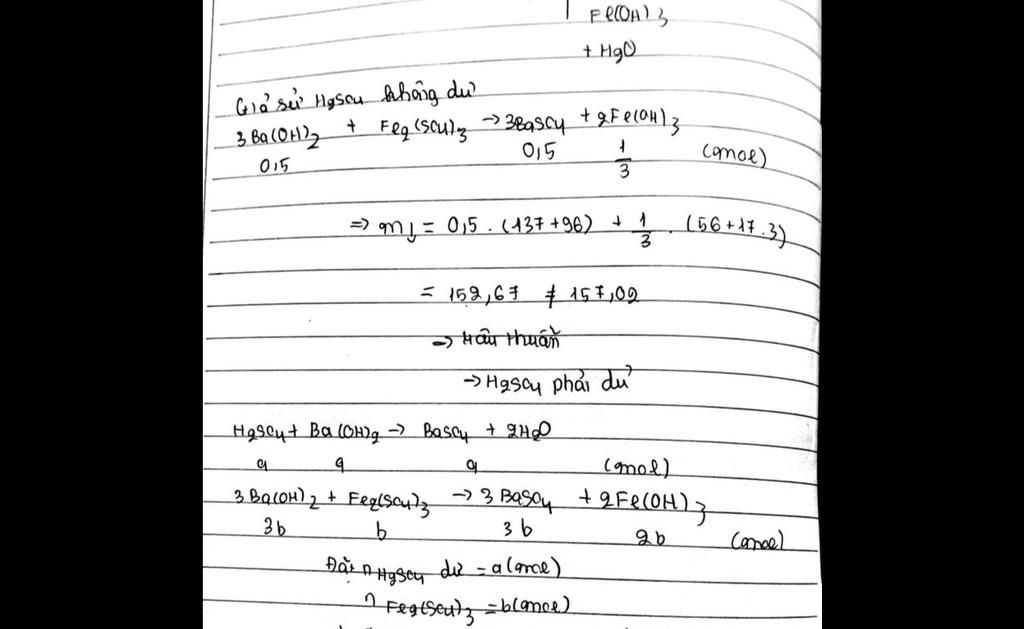 Fe(OH)3
+ H2O
Giả sử H2SO4 không dư
3Ba(OH)2 + Fe2(SO4)3 → 3BaSO4 + 2Fe(OH)3
0,5 0,5 1/3 (mol)
⇒ m↓ = 0,5 . (137+96) + 1/3 . (56+17.3)
= 152,67 ≠ 157,02
→ Mâu thuẫn
→ H2SO4 phải dư
H2SO4 + Ba(OH)2 → BaSO4 + 2H2O
a a a (mol)
3Ba(OH)2 + Fe2(SO4)3 → 3BaSO4 + 2Fe(OH)3
3b b 3b 2b (mol)
Đặt n H2SO4 dư = a(mol)
n Fe2(SO4)3 = b(mol)